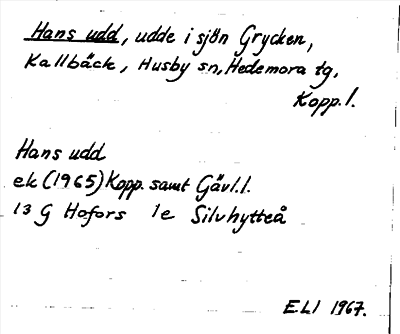 Hans udd, udde i sjön Grycken,
Kallbäck, Husby sn, Hedemora tg,
Kopp. l.
Hans udd
ek (1965) Kopp. samt Gävl. l.
13 G Hofors 1e Silvhytteå
ELI 1967.